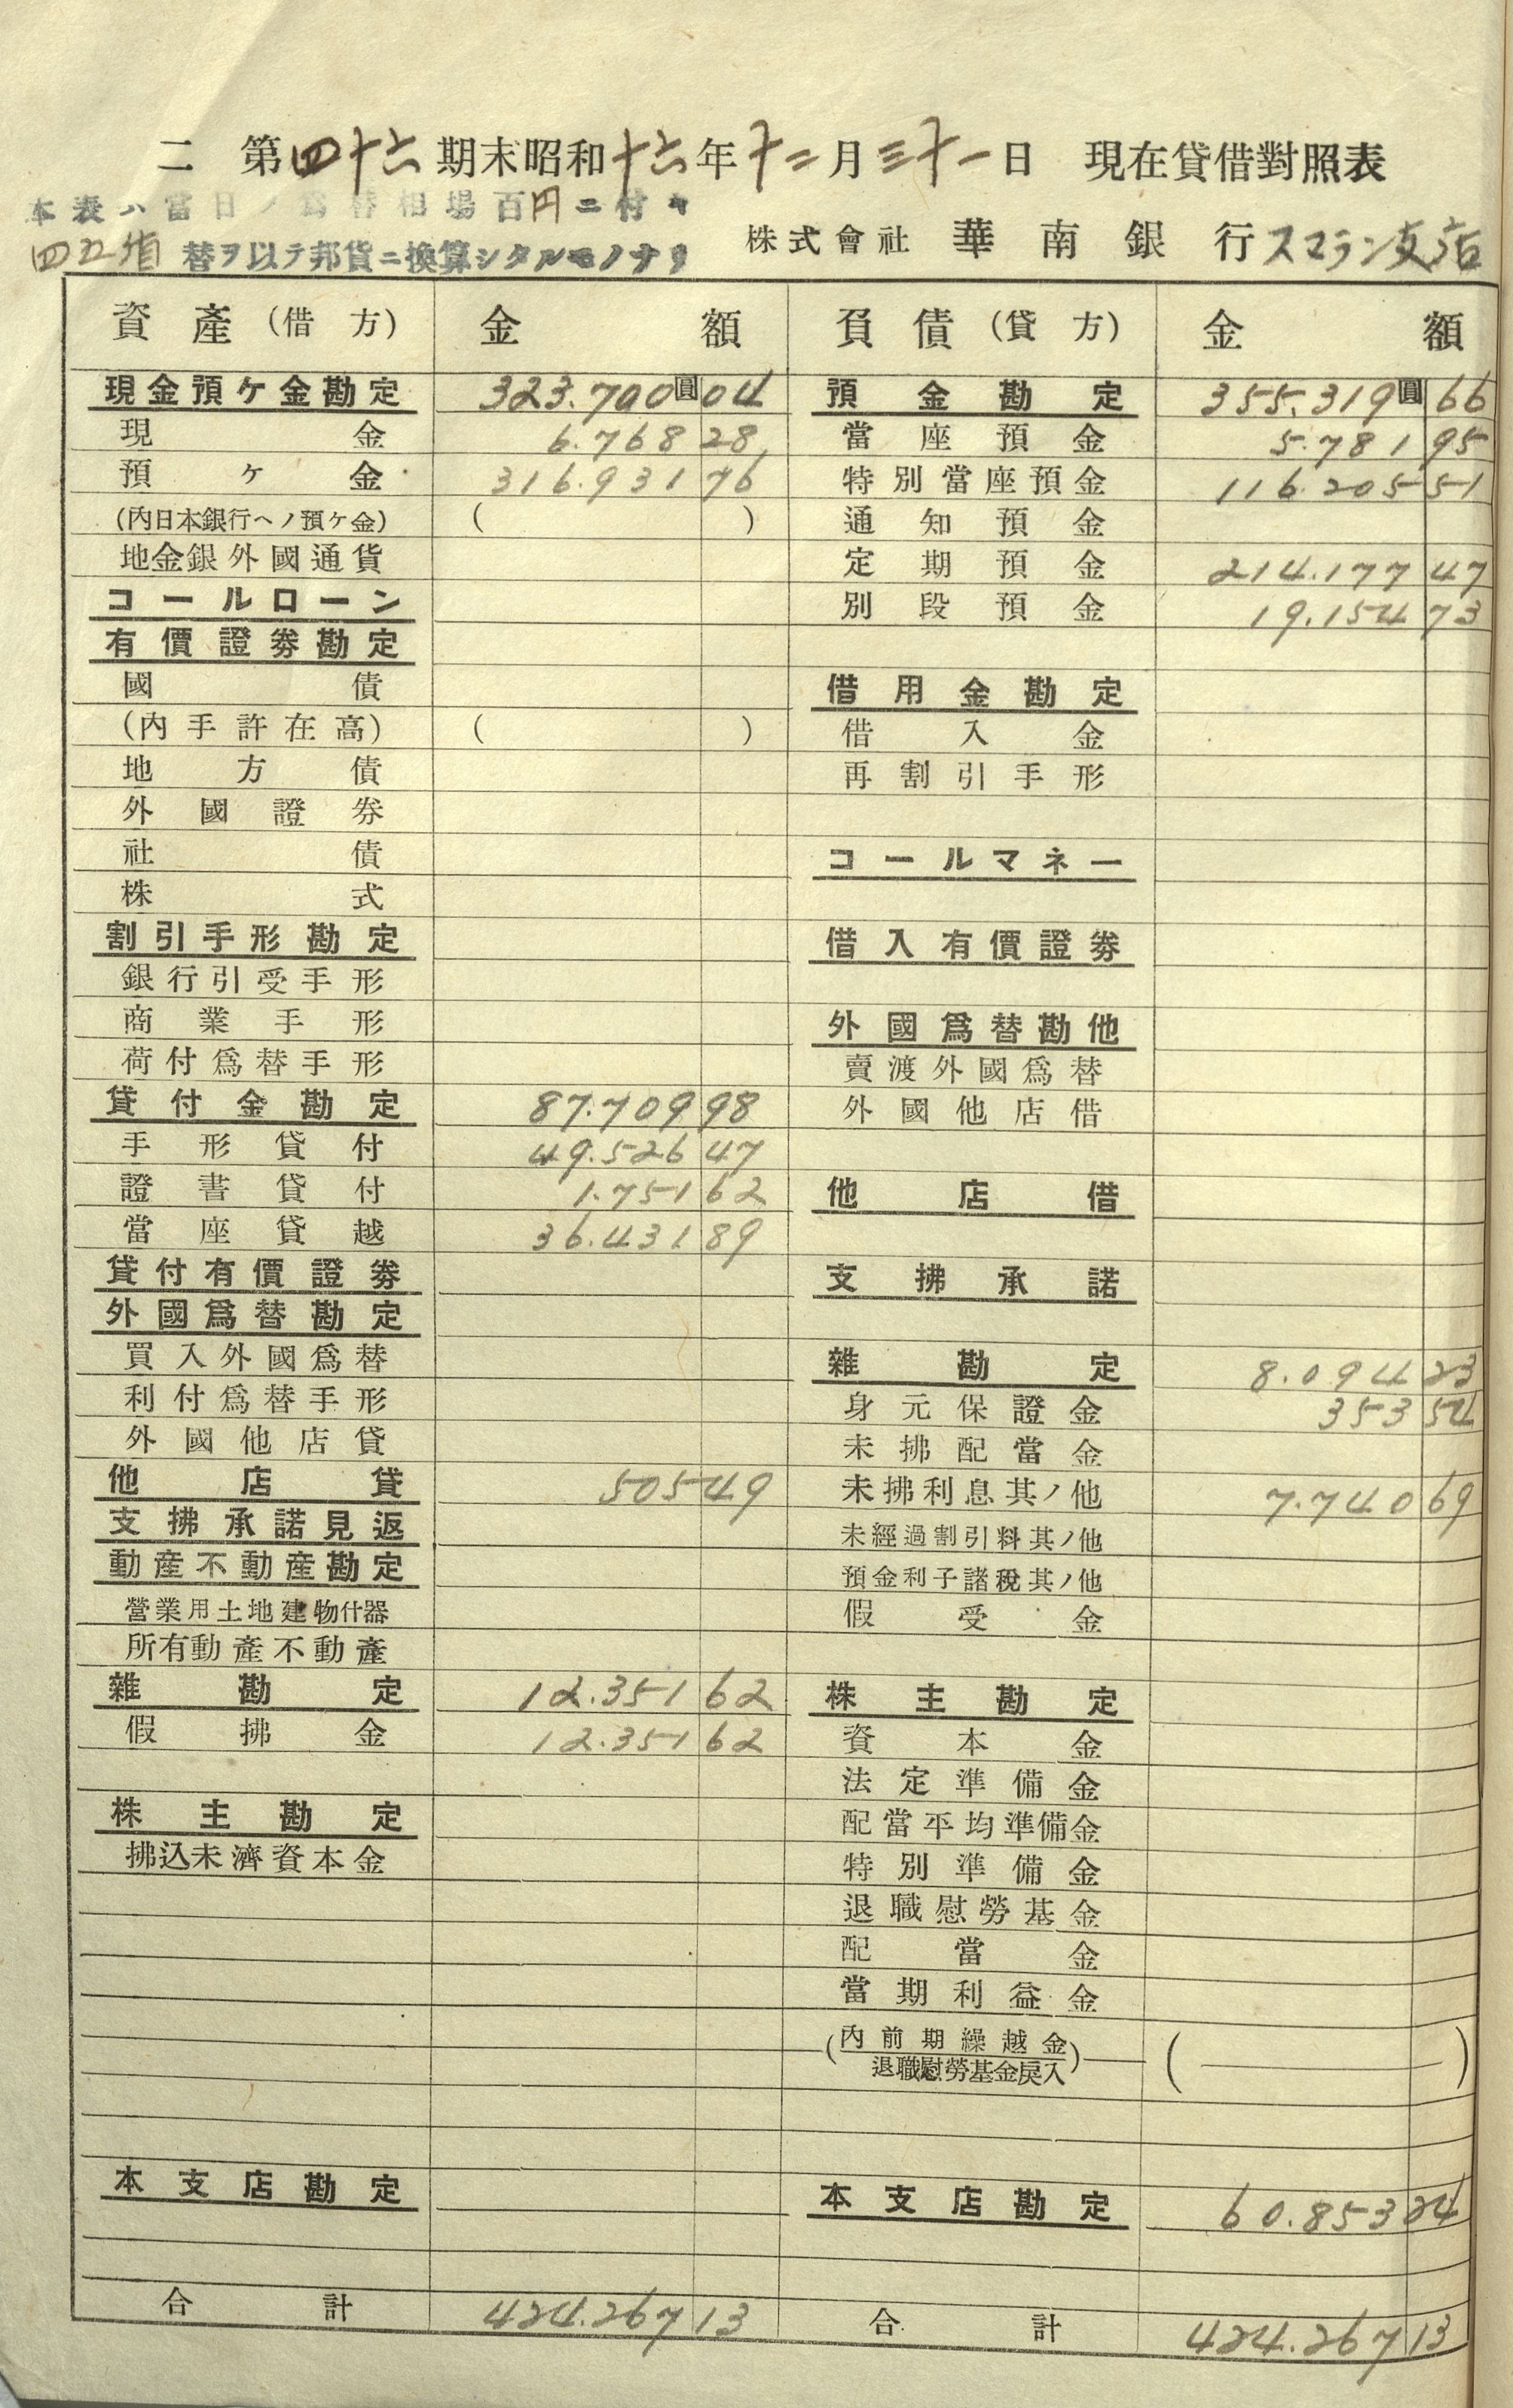 二 第四十六期末昭和十六年十二月三十一日 現在貸借對照表
本表ハ當日ノ爲替相場百円ニ付キ
四五盾 替ヲ以テ邦貨ニ換算シタルモノナリ
株式會社 華南銀行スマラン支店
資產(借方) 金額 負債(貸方) 金額
現金預ケ金勘定 323.700圓04
現金 6.768 28
預ケ金 316.931 76
(內日本銀行ヘノ預ケ金) ( )
地金銀外國通貨
コールローン
有價證券勘定
國債
(內手許在高) ( )
地方債
外國證券
社債
株式
割引手形勘定
銀行引受手形
商業手形
荷付爲替手形
貸付金勘定 87.709 98
手形貸付 49.526 47
證書貸付 1.751 62
當座貸越 36.431 89
貸付有價證券
外國爲替勘定
買入外國爲替
利付爲替手形
外國他店貸
他店貸 505 49
支拂承諾見返
動產不動產勘定
營業用土地建物什器
所有動產不動產
雜勘定 12.351 62
假拂金 12.351 62
株主勘定
拂込未濟資本金
本支店勘定
合計 424.267 13
預金勘定 355.319圓66
當座預金 5.781 95
特別當座預金 116.205 51
通知預金
定期預金 214.177 47
別段預金 19.154 73
借用金勘定
借入金
再割引手形
コールマネー
借入有價證券
外國爲替勘他
賣渡外國爲替
外國他店借
他店借
支拂承諾
雜勘定 8.094 23
身元保證金 353 54
未拂配當金
未拂利息其ノ他 7.740 69
未經過割引料其ノ他
預金利子諸稅其ノ他
假受金
株主勘定
資本金
法定準備金
配當平均準備金
特別準備金
退職慰勞基金
配當金
當期利益金
(內前期繰越金 ( )
退職慰勞基金戾入)
本支店勘定 60.853 24
合計 424.267 13